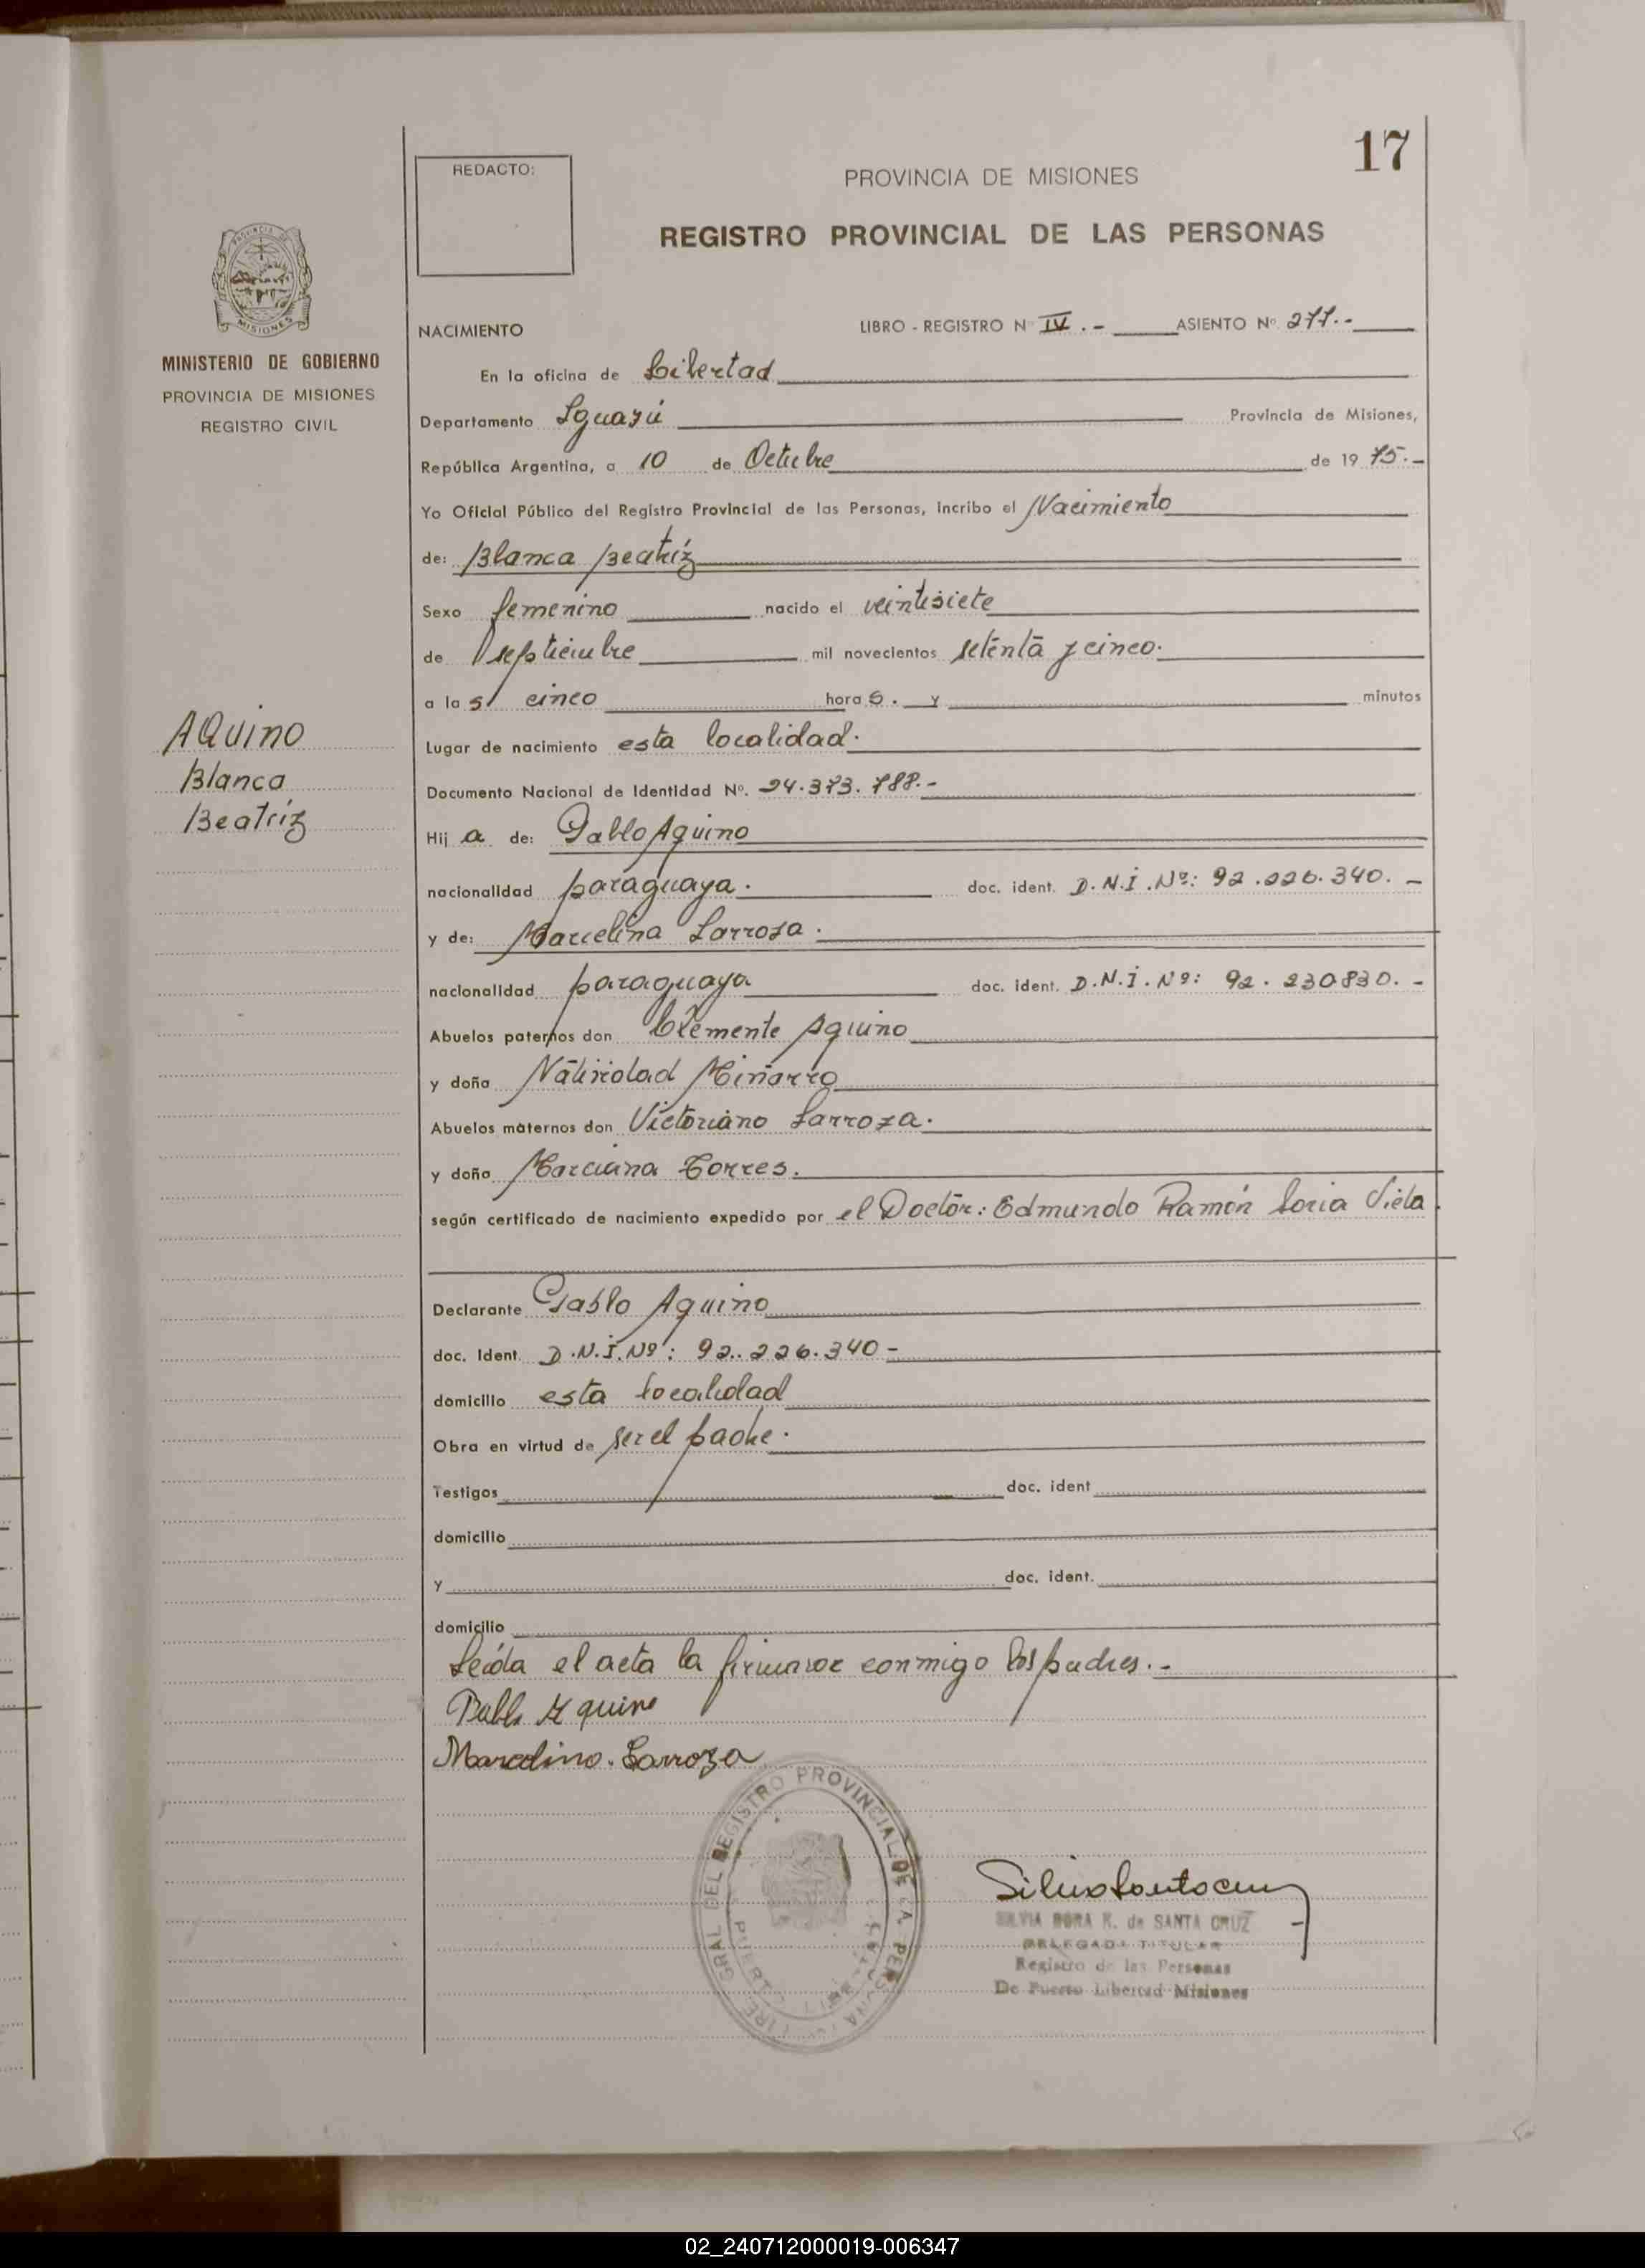 17
REDACTO:
PROVINCIA DE MISIONES
REGISTRO PROVINCIAL DE LAS PERSONAS
MISIONES
MINISTERIO DE GOBIERNO
PROVINCIA DE MISIONES
REGISTRO CIVIL
NACIMIENTO
LIBRO - REGISTRO Nº IV.- ASIENTO Nº 277.-
En la oficina de Libertad
Departamento Iguazú Provincia de Misiones,
República Argentina, a 10 de Octubre de 1975.-
Yo Oficial Público del Registro Provincial de las Personas, incribo el Nacimiento
de: Blanca Beatríz
Sexo femenino nacido el veintisiete
de septiembre mil novecientos setenta y cinco.
a las cinco horas. y minutos
Lugar de nacimiento esta localidad.
Documento Nacional de Identidad Nº. 24.373.788.-
Hija de: Pablo Aquino
nacionalidad paraguaya. doc. ident. D.N.I.Nº: 92.226.340.-
y de: Marcelina Larrosa.
nacionalidad paraguaya doc. ident. D.N.I.Nº: 92.230830.-
Abuelos paternos don Clemente Aquino
y doña Natividad Miñarro
Abuelos maternos don Victoriano Larroza.
y doña Marciana Torres.
según certificado de nacimiento expedido por el Doctor: Edmundo Ramón Soria Viela.
Declarante Pablo Aquino
doc. Ident. D.N.I.Nº: 92.226.340-
domicilio esta localidad
Obra en virtud de ser el padre.
Testigos doc. ident
domicilio
y doc. ident.
domicilio
Leída el acta la firman conmigo los padres.-
Pablo Aquino
Marcelina Larroza
AQuino
Blanca
Beatríz
GRAL DEL REGISTRO PROVINCIAL DE LA PERSONAS
SILVIA NORA K. de SANTA CRUZ
DELEGADA TITULAR
Registro de las Personas
De Puerto Libertad Misiones
02_240712000019-006347